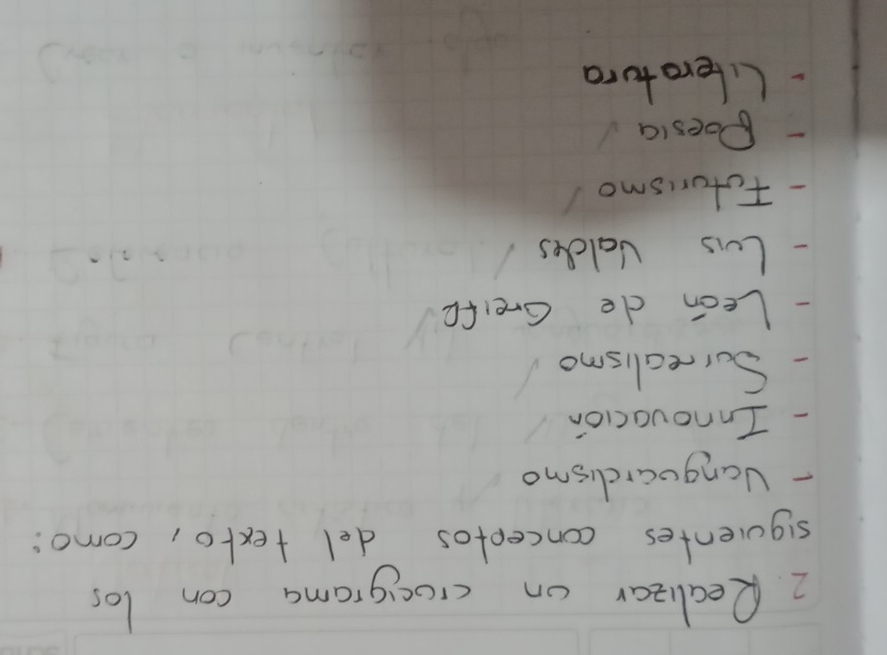 2. Realizar un crucigrama con los
siguientes conceptos del texto, como:
- Vanguardismo
- Innovación
- Surrealismo
- León de Greiff
- Luis Valdes
- Futurismo
- Poesia
- Literatura